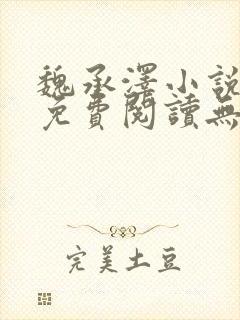 魏承澤小說
免費閱讀無
完美土豆